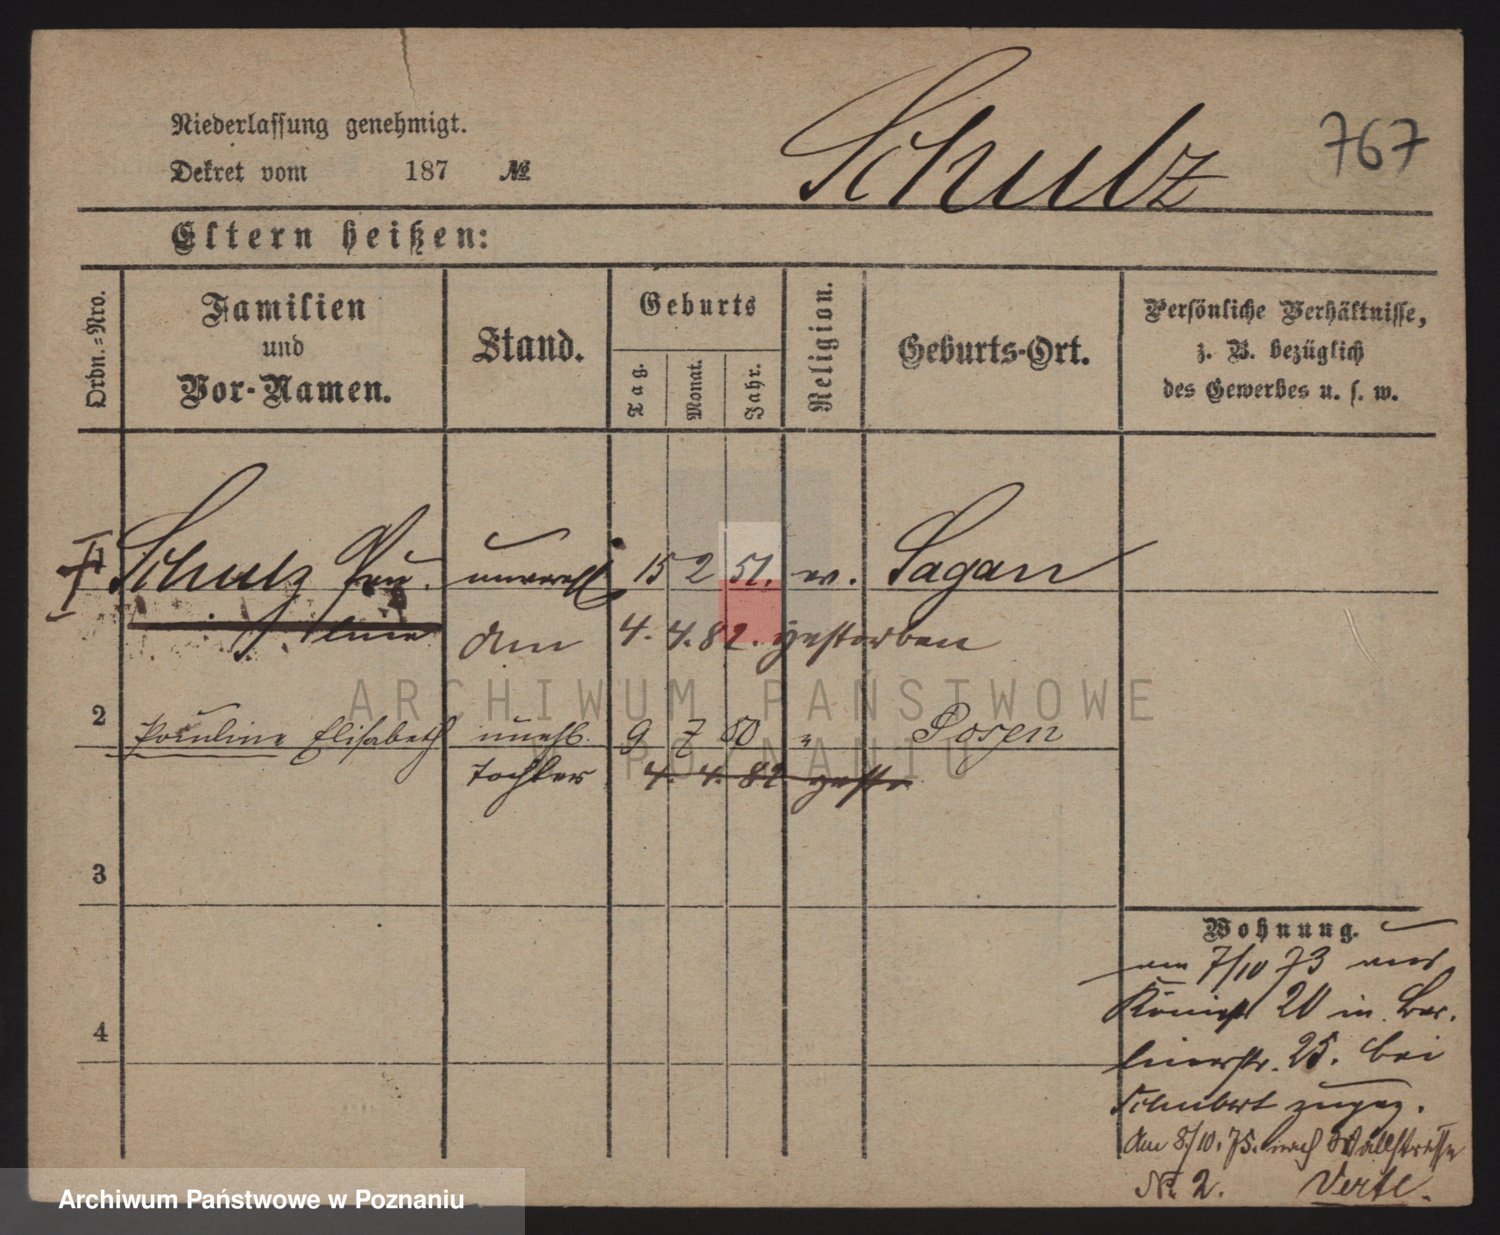 Schulz
767
Niederlassung genehmigt.
Dekret vom 187 №
Eltern heißen:
Ordn.-Nro.
Familien
und
Vor-Namen.
Stand.
Geburts
Tag.
Monat.
Jahr.
Religion.
Geburts-Ort.
Persönliche Verhältnisse,
z. B. bezüglich
des Gewerbes u. s. w.
Schulz Pau- unverehl 15 2 51. ev. Sagan
line am 4. 4. 82. gestorben
2 Pauline Elisabeth unehl. 9 7 " Posen
Tochter 4. 4. 82 gesto
3
4
Wohnung.
am 7/10 73 aus
Königstr 20 in Ber-
linerstr. 25. bei
Schubert zugez.
Am 8/10. 75. nach Wallstrasse
№ 2. Verte.
ARCHIWUM PAŃSTWOWE
W POZNANIU
Archiwum Państwowe w Poznaniu